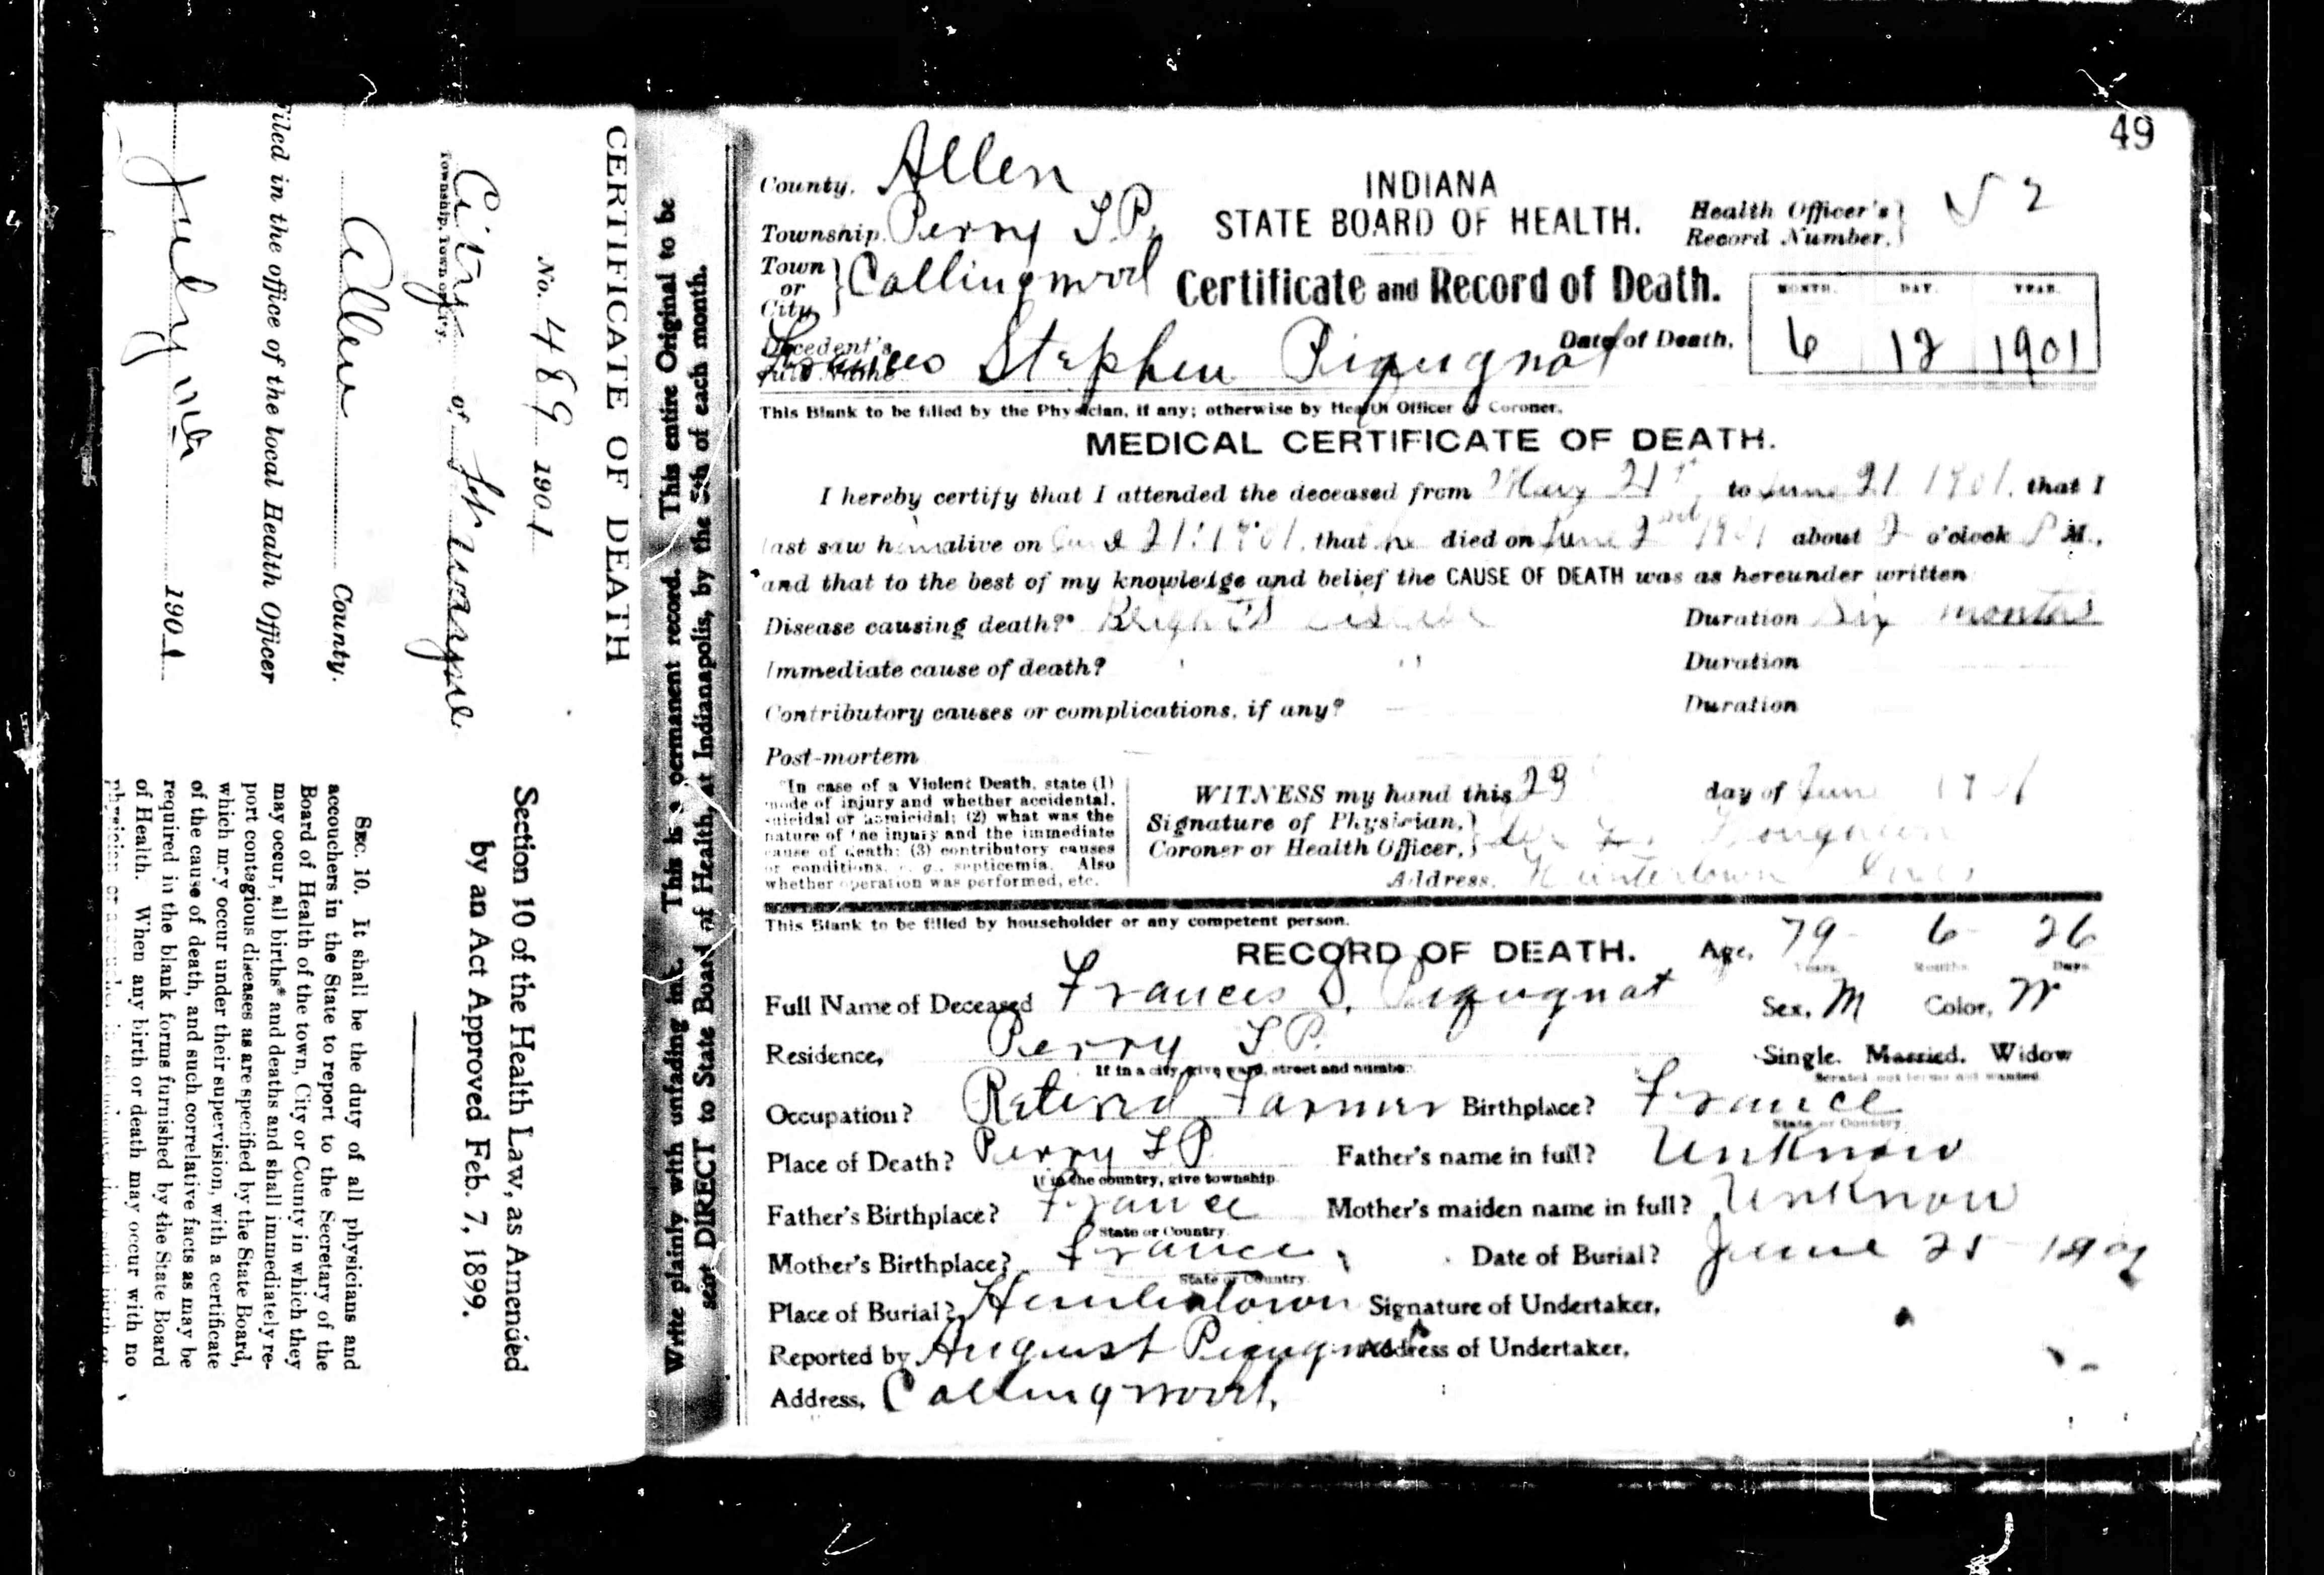 49
CERTIFICATE OF DEATH
No. 489 1901
City of Ft Wayne
Township, Town or City.
Allen County.
Filed in the office of the local Health Officer
July 1901
Section 10 of the Health Law, as Amended
by an Act Approved Feb. 7, 1899.
SEC. 10. It shall be the duty of all physicians and
accouchers in the State to report to the Secretary of the
Board of Health of the town, City or County in which they
may occur, all births* and deaths and shall immediately re-
port contagious diseases as are specified by the State Board,
which may occur under their supervision, with a certificate
of the cause of death, and such correlative facts as may be
required in the blank forms furnished by the State Board
of Health. When any birth or death may occur with no
Write plainly with unfading ink. This is a permanent record. This entire Original to be
sent DIRECT to State Board of Health, at Indianapolis, by the 5th of each month.
County, Allen
INDIANA
STATE BOARD OF HEALTH.
Health Officer's Record Number,
Township, Perry T.P.
Town or City, Collingwood
Certificate and Record of Death.
MONTH. DAY. YEAR.
Decedent's Full Name Frances Stephen Piqugnot
Date of Death, 6 1901
This Blank to be filled by the Physician, if any; otherwise by Health Officer or Coroner.
MEDICAL CERTIFICATE OF DEATH.
I hereby certify that I attended the deceased from May 21st to June 21 1901, that I
last saw him alive on June 21 1901, that he died on June 1901 about 2 o'clock P M.,
and that to the best of my knowledge and belief the CAUSE OF DEATH was as hereunder written
Disease causing death?* Brights disease Duration Six months
Immediate cause of death? Duration
Contributory causes or complications, if any? Duration
Post-mortem
*In case of a Violent Death, state (1)
mode of injury and whether accidental,
suicidal or homicidal; (2) what was the
nature of the injury and the immediate
cause of death; (3) contributory causes
or conditions, e. g., septicemia. Also
whether operation was performed, etc.
WITNESS my hand this 23 day of June 1901
Signature of Physician,
Coroner or Health Officer,
Address, Huntertown
This Blank to be filled by householder or any competent person.
RECORD OF DEATH. Age, 79 6 26
Years. Months. Days.
Full Name of Deceased Frances S. Piqugnat Sex, M Color, W
Residence, Perry T P. Single. Married. Widow
If in a city, give ward, street and number. Scratch out terms not wanted.
Occupation? Retired Farmer Birthplace? France
State or Country.
Place of Death? Perry T P Father's name in full? Unknow
If in the country, give township.
Father's Birthplace? France Mother's maiden name in full? Unknow
State or Country.
Mother's Birthplace? France Date of Burial? June 25 1901
State or Country.
Place of Burial? Huntertown Signature of Undertaker,
Reported by August Piqugnat Address of Undertaker,
Address, Collingwood,